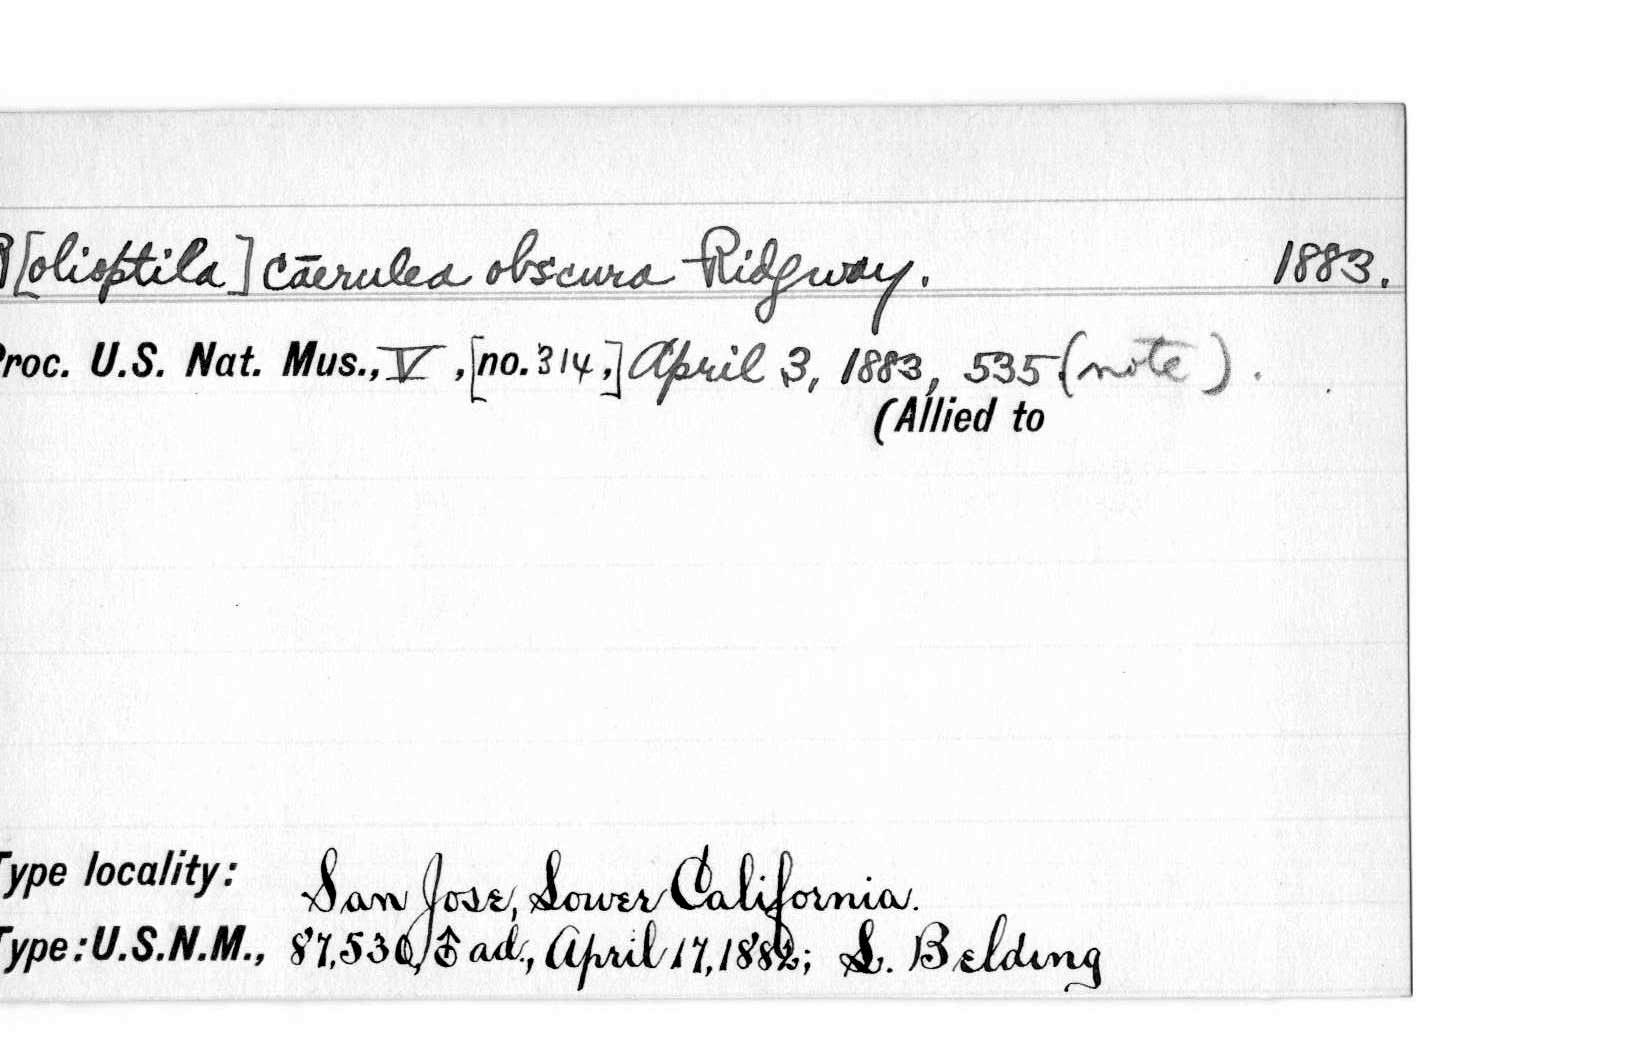 P[olioptila] cāerulea obscura Ridgway. 1883.
Proc. U.S. Nat. Mus., V, [no. 314,] April 3, 1883, 535 (note).
(Allied to
Type locality: San Jose, Lower California.
Type: U.S.N.M., 87,530, ♂ ad., April 17, 1882; L. Belding